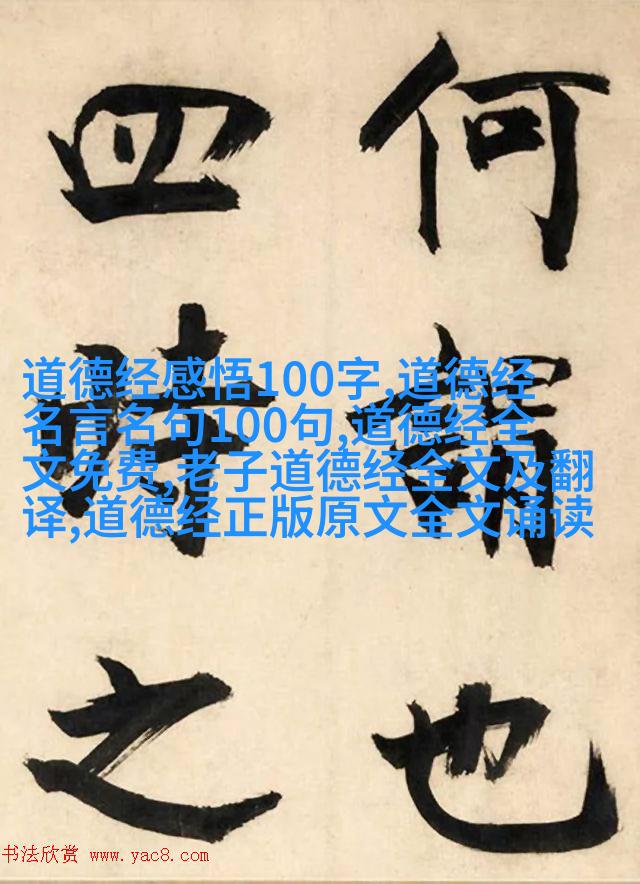 何謂也
四時之
道德经感悟100字,道德经
名言名句100句,道德经全
文免费,老子道德经全文及翻
译,道德经正版原文全文诵读
书法欣赏 www.yac8.com